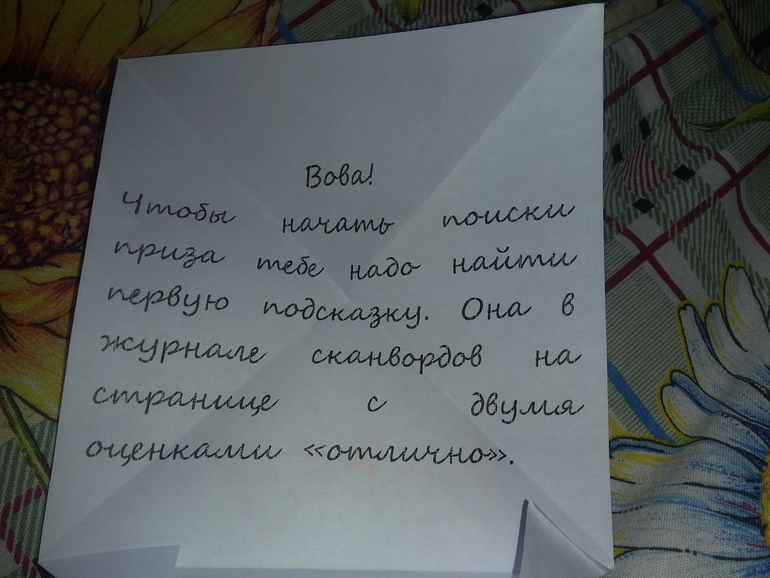 Вова!
Чтобы начать поиски
приза тебе надо найти
первую подсказку. Она в
журнале сканвордов на
странице с двумя
оценками «отлично».